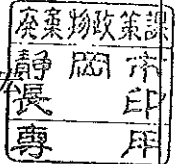 廃棄物政策課
静岡市
長印
専用